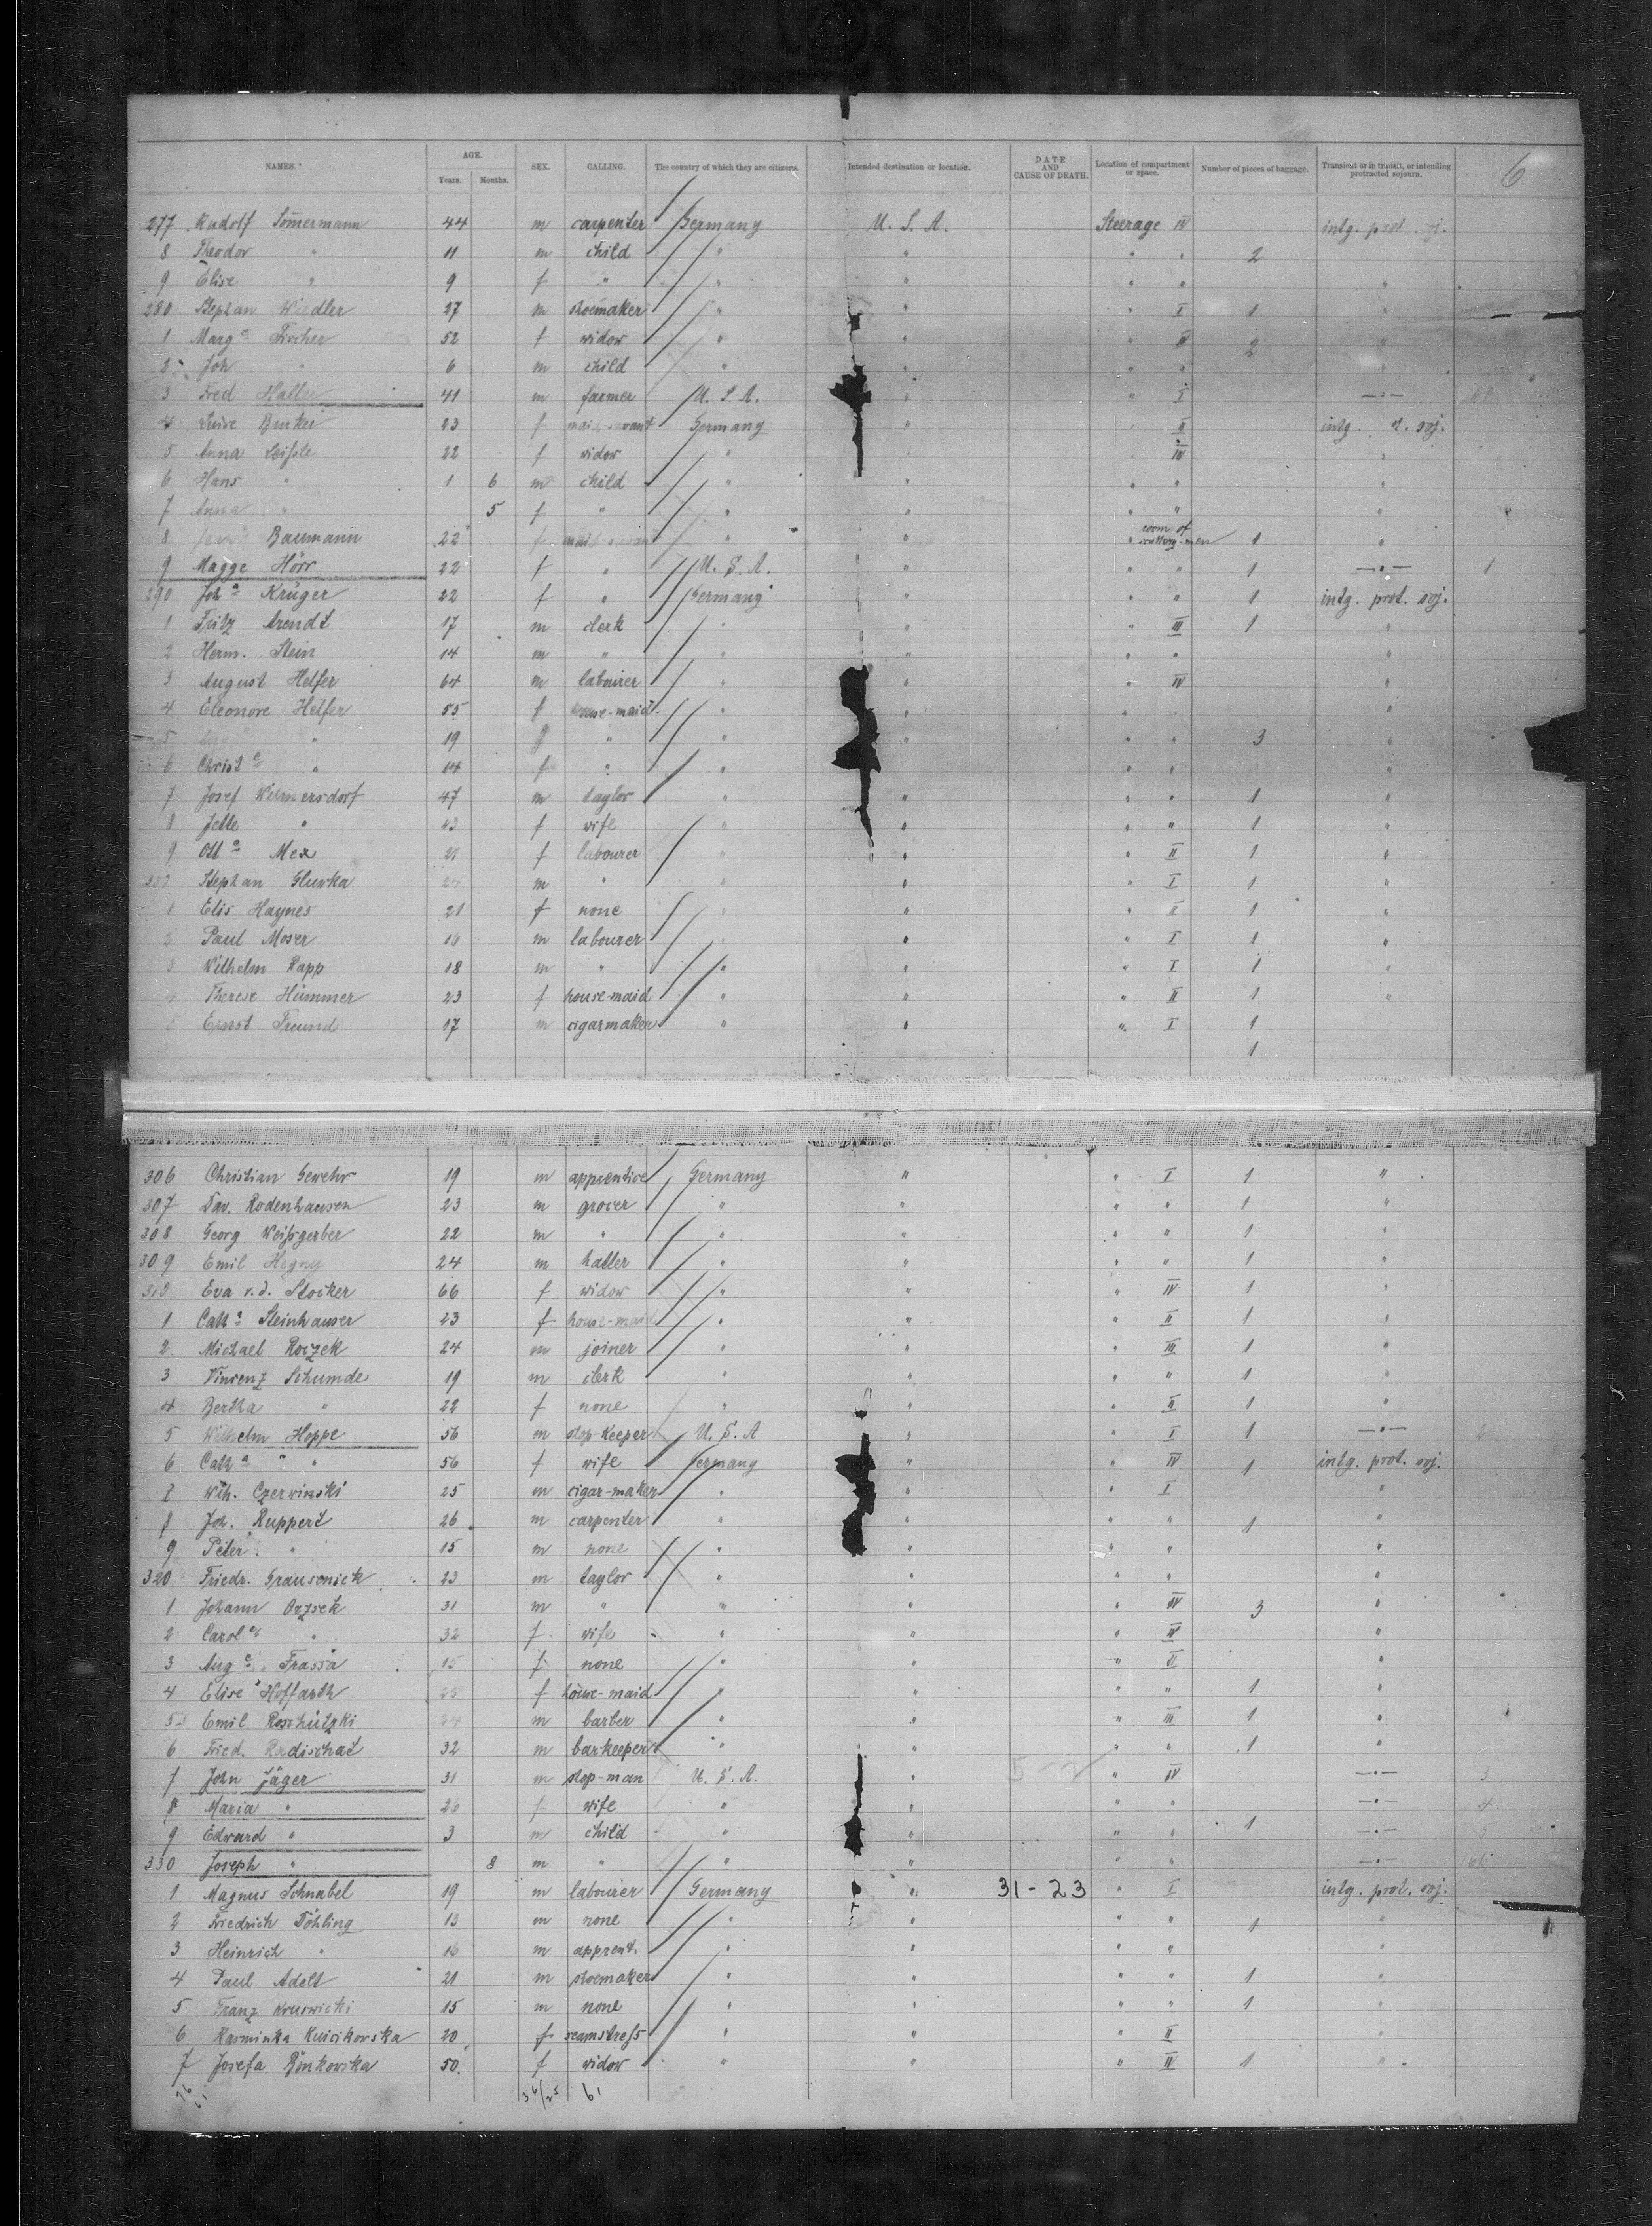 6
NAMES. AGE. Years. Months. SEX. CALLING. The country of which they are citizens. Intended destination or location. DATE AND CAUSE OF DEATH. Location of compartment or space. Number of pieces of baggage. Transient or in transit, or intending protracted sojourn.
277 Rudolf Som̄ermann 44 m carpenter Germany U. S. A. Steerage IV intg. prot. oj.
8 Theodor " 11 m child " " " " 2
9 Elise " 9 f " " " " " "
280 Stephan Wiedler 27 m shoemaker " " " I 1 "
1 Marg e Fischer 52 f widow " " " IV 2 "
2 Joh " 6 m child " " " " "
3 Fred Haller 41 m farmer U. S. A. " " I —"—
4 Luise 23 f Germany " " II intg. soj.
5 Anna Leißle 22 f widow " " " IV "
6 Hans " 1 6 m child " " " " "
7 Anna " 5 f " " " " " "
8 Baumann 22 f " " " room of 1 "
9 Magge Hörr 22 f " U. S. A. " " " 1 —"— 1
290 Joh a Krüger 22 f " Germany " " " 1 intg. prot. soj.
1 Fritz Arendt 17 m clerk " " " III 1 "
2 Herm. Stein 14 m " " " " " "
3 August Helfer 64 m labourer " " " IV "
4 Eleonore Helfer 55 f house-maid " " " "
5 " 19 f " " " " " 3 "
6 Christ e " 14 f " " " " "
7 Josef Wilmersdorf 47 m taylor " " " " 1 "
8 Jette " 43 f wife " " " " 1 "
9 Ott e Mex f labourer " " " II 1 "
300 Stephan Glurka m " " " " I 1 "
1 Elis Haynes 21 f none " " " II 1 "
2 Paul Moser m labourer " " " I 1 "
3 Wilhelm Rapp 18 m " " " " I 1 "
4 Therese Hümmer 23 f house-maid " " " II 1 "
5 Ernst Freund 17 m cigarmaker " " " I 1
1
306 Christian Gewehr 19 m apprentice Germany " " I 1 "
307 Dav. Rodenhausen 23 m grocer " " " " 1 "
308 Georg Weißgerber 22 m " " " " " 1 "
309 Emil Hegny 24 m hatter " " " " 1 "
310 Eva v. d. Stocker 66 f widow " " " IV 1 "
1 Cath a Steinhauser 23 f house-maid " " " II 1 "
2 Michael Roczek 24 m joiner " " " III 1 "
3 Vincenz Schumde 19 m clerk " " " " 1 "
4 Bertha " 22 f none " " " II 1 "
5 Wilhelm Hoppe 56 m shop-keeper U. S. A " " I 1 —"— 2
6 Cath a " " 56 f wife Germany " " IV 1 intg. prot. soj.
7 Wilh. Czerwinski 25 m cigar-maker " " " I "
8 Joh. Ruppert 26 m carpenter " " " " 1 "
9 Peter " 15 m none " " " " "
320 Friedr. Grausenick 23 m taylor " " " " "
1 Johann Orzsek 31 m " " " " IV 3 "
2 Carol e " 32 f wife " " " IV "
3 Aug e Frassa 15 f none " " " II "
4 Elise Hoffarth f house-maid " " " " 1 "
5 Emil Roschützki m barber " " " III 1 "
6 Fried. Radischat 32 m barkeeper " " " " 1 "
7 John Jäger 31 m shop-man U. S. A. " " IV —"— 3
8 Maria " 26 f wife " " " " —"— 4
9 Edward " 3 m child " " " " 1 —"— 5
330 Joseph " 8 m " " " " " —"—
1 Magnus Schnabel 19 m labourer Germany " 31-23 " I intg. prot. soj.
2 Friedrich Döhling 13 m none " " " " 1 "
3 Heinrich " 16 m apprent. " " " " "
4 Paul Adelt 21 m shoemaker " " " " 1 "
5 Franz Kruswicki 15 m none " " " " 1 "
6 Kasminka Kuicikowska 20 f seamstreß " " " II "
7 Josefa Rynkowska 50 f widow " " " IV 1 "
36/25 61